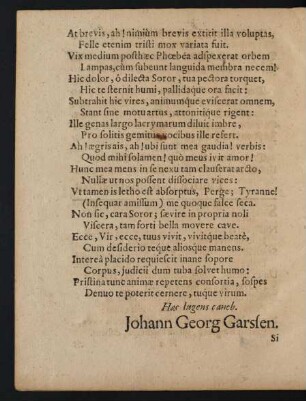 At brevis, ah! nimium brevis extitit illa voluptas,
Felle etenim tristi mox variata fuit.
Vix medium posthæc Phœbéa adspexerat orbem
Lampas, cùm subeunt languida membra necem!
Hic dolor, ô dilecta Soror, tua pectora torquet,
Hic te sternit humi, pallidaque ora facit:
Subtrahit hic vires, animumque eviscerat omnem,
Stant sine motu artus, attonitique rigent:
Ille genas largo lacrymarum diluit imbre,
Pro solitis gemitus vocibus ille refert.
Ah lægris ais, ah! ubi sunt mea gaudia! verbis:
Quod mihi solamen! quò meus ivit amor!
Hunc mea mens in se nexu tam clauserat arcto,
Nullæ ut nos possent dissociare vices:
Vt tamen is letho est absorptus, Perge; Tyranne!
(Insequar amissum) me quoque falce seca.
Non sic, cara Soror; sævire in propria noli
Viscera, tam forti bella movere cave.
Ecce, Vir, ecce, tuus vivit, vivitque beatè,
Cum desiderio teque aliosque manens.
Intereà placido requiescit inane sopore
Corpus, judicii dum tuba solvet humo:
Pristina tunc animæ repetens consortia, sospes
Denuo te poterit cernere, tuque virum.
Hæc lugens caneb.
Johann Georg Garssen.
Si